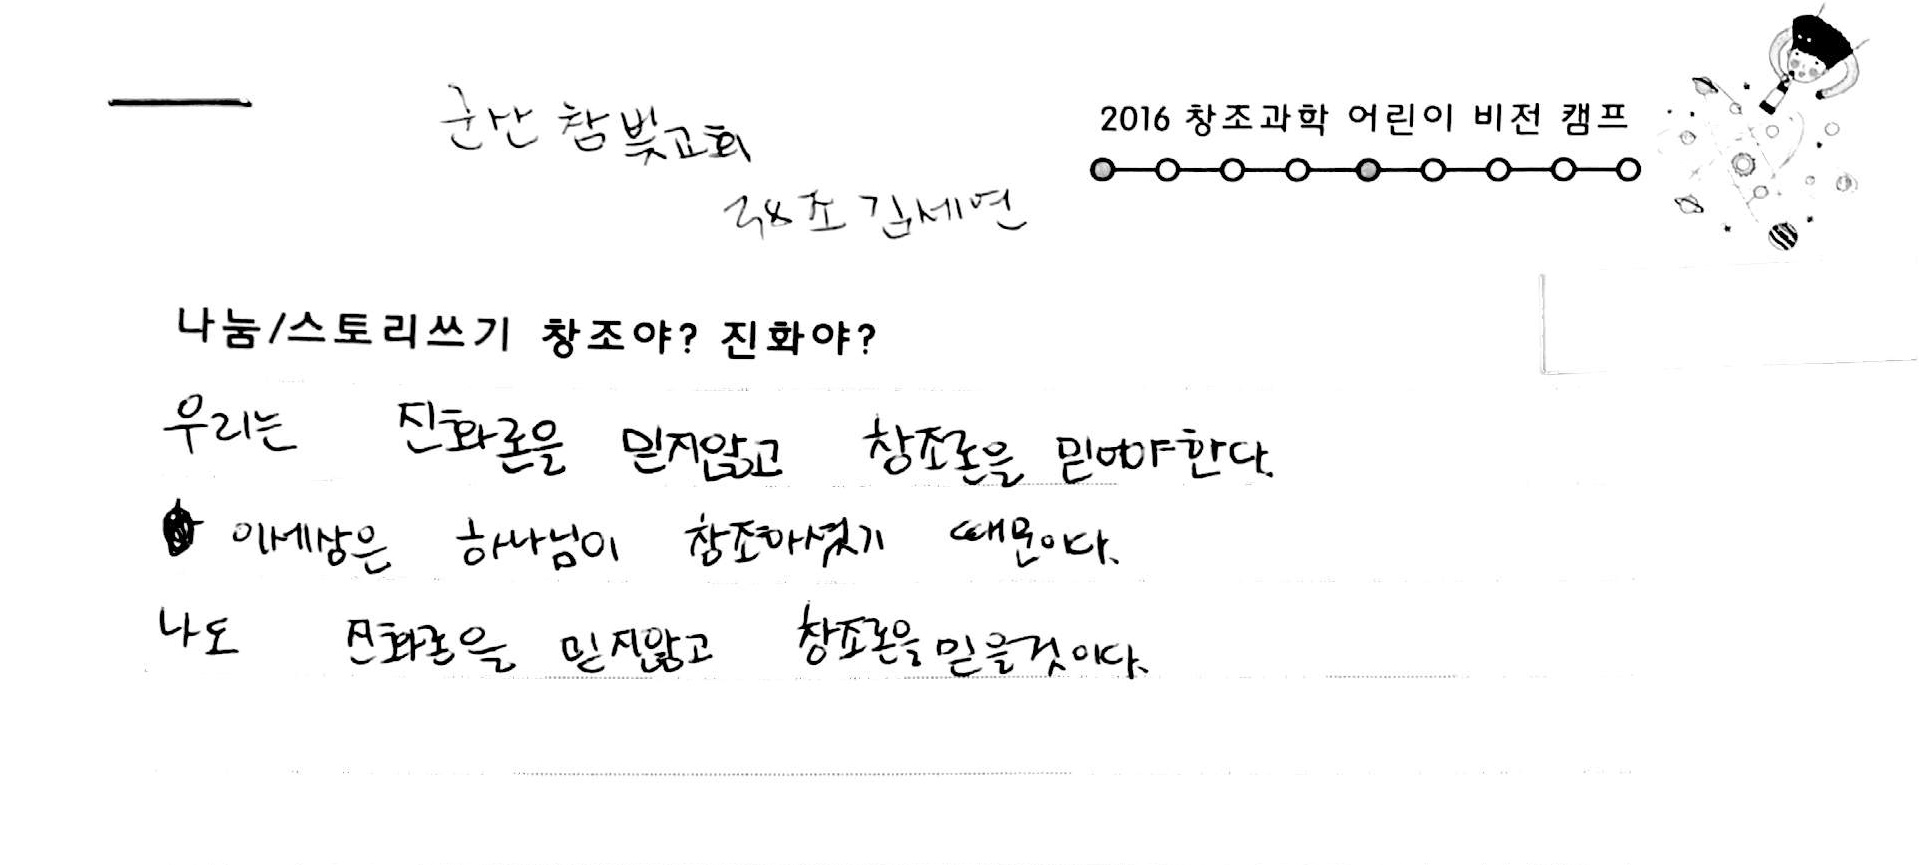 군산 참빛교회
2016 창조과학 어린이 비전 캠프
조 김세연
나눔/스토리쓰기 창조야? 진화야?
우리는 진화론을 믿지않고 창조론을 믿어야한다.
이세상은 하나님이 창조하셨기 때문이다.
나도 진화론을 믿지않고 창조론을 믿을것이다.